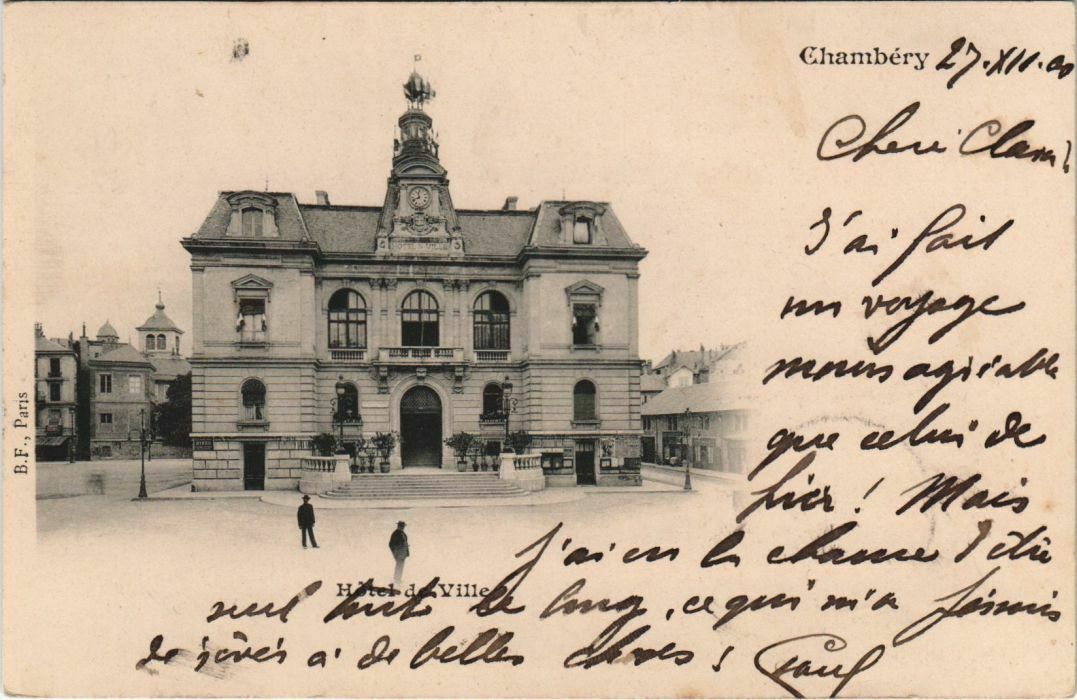 Chambéry 27.XII.00
Chère Clara!
J'ai fait
un voyage
moins agréable
que celui de
hier! Mais
j'ai eu la chance d'être
seul tout le long, ce qui m'a permis
de rêver à de belles choses! Paul
Hôtel de Ville
HOTEL DE VILLE
B.F., Paris